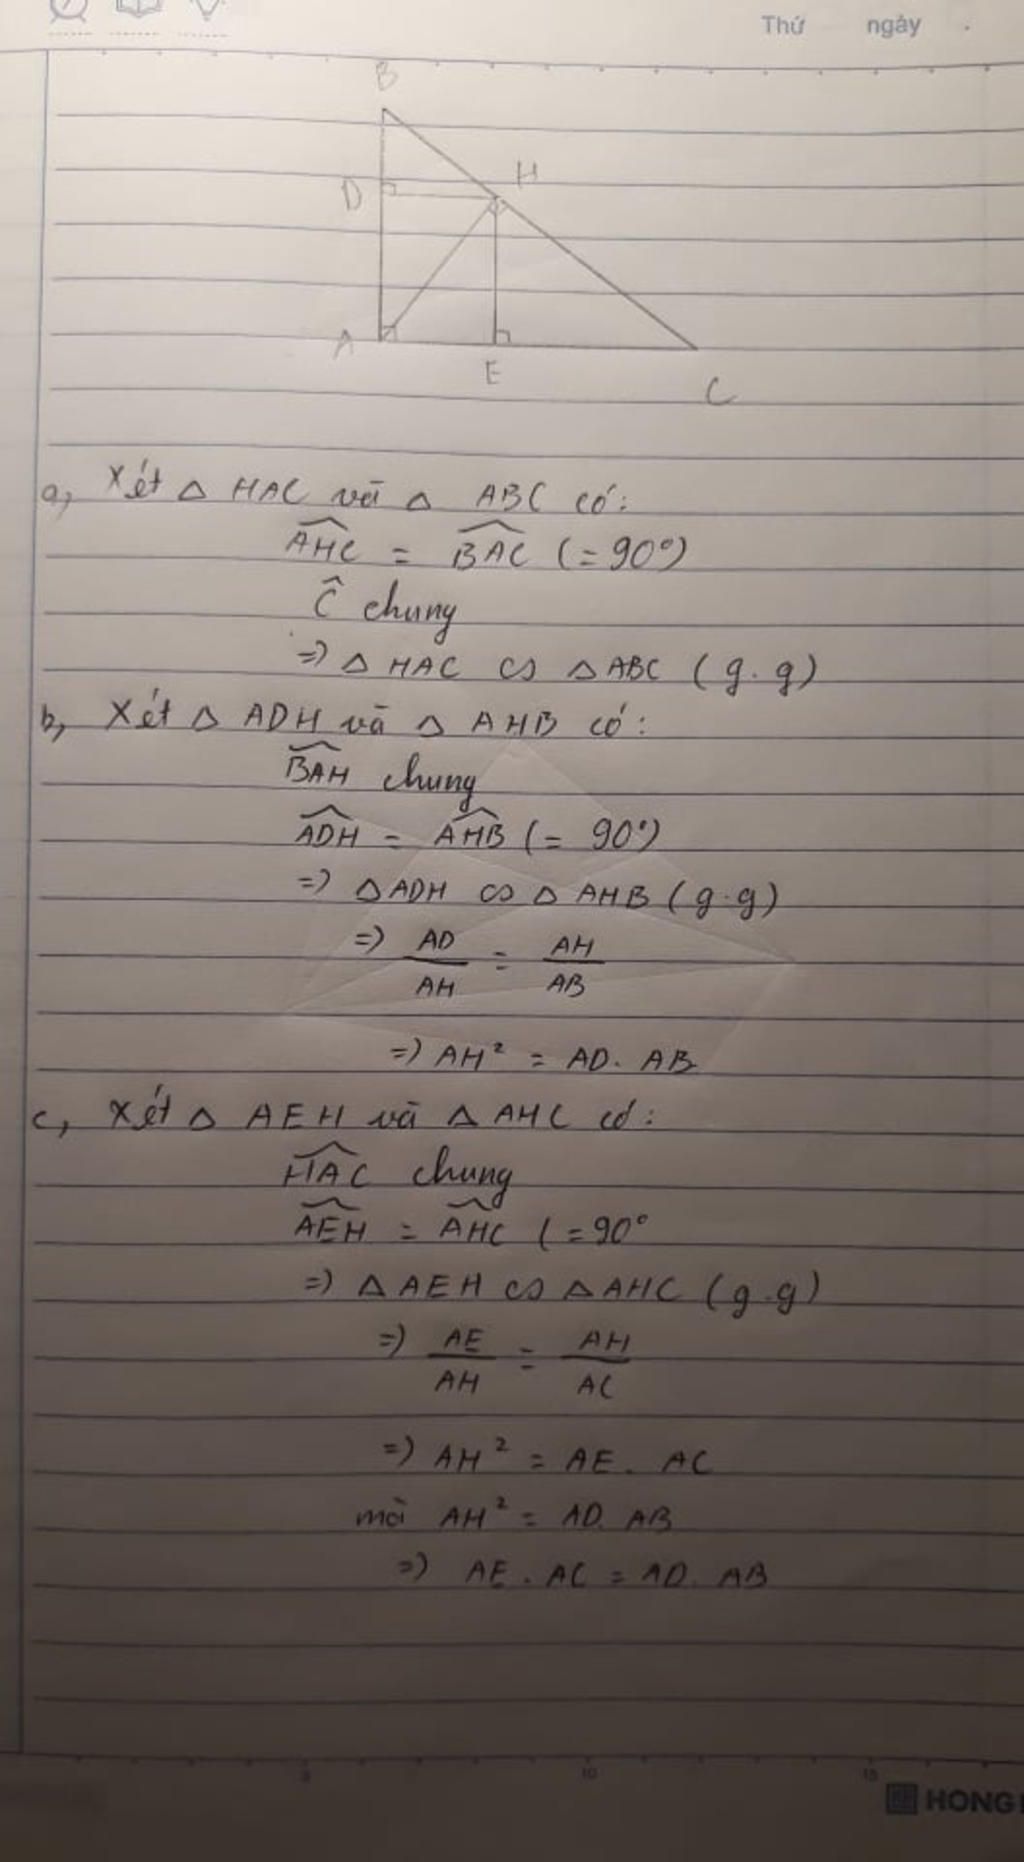 Thứ ngày .
B
D
H
A
E
C
a, Xét △ HAC và △ ABC có:
AHC = BAC (= 90°)
Ĉ chung
=> △ HAC ∽ △ABC (g.g)
b, Xét △ ADH và △ AHB có:
BAH chung
ADH = AHB (= 90°)
=> △ADH ∽ △ AHB (g.g)
=> AD/AH = AH/AB
=> AH² = AD. AB
c, Xét △ AEH và △ AHC có:
HAC chung
AEH = AHC (= 90°
=> △AEH ∽ △AHC (g.g)
=> AE/AH = AH/AC
=> AH² = AE. AC
mà AH² = AD. AB
=> AE. AC = AD. AB
10
15
HONG